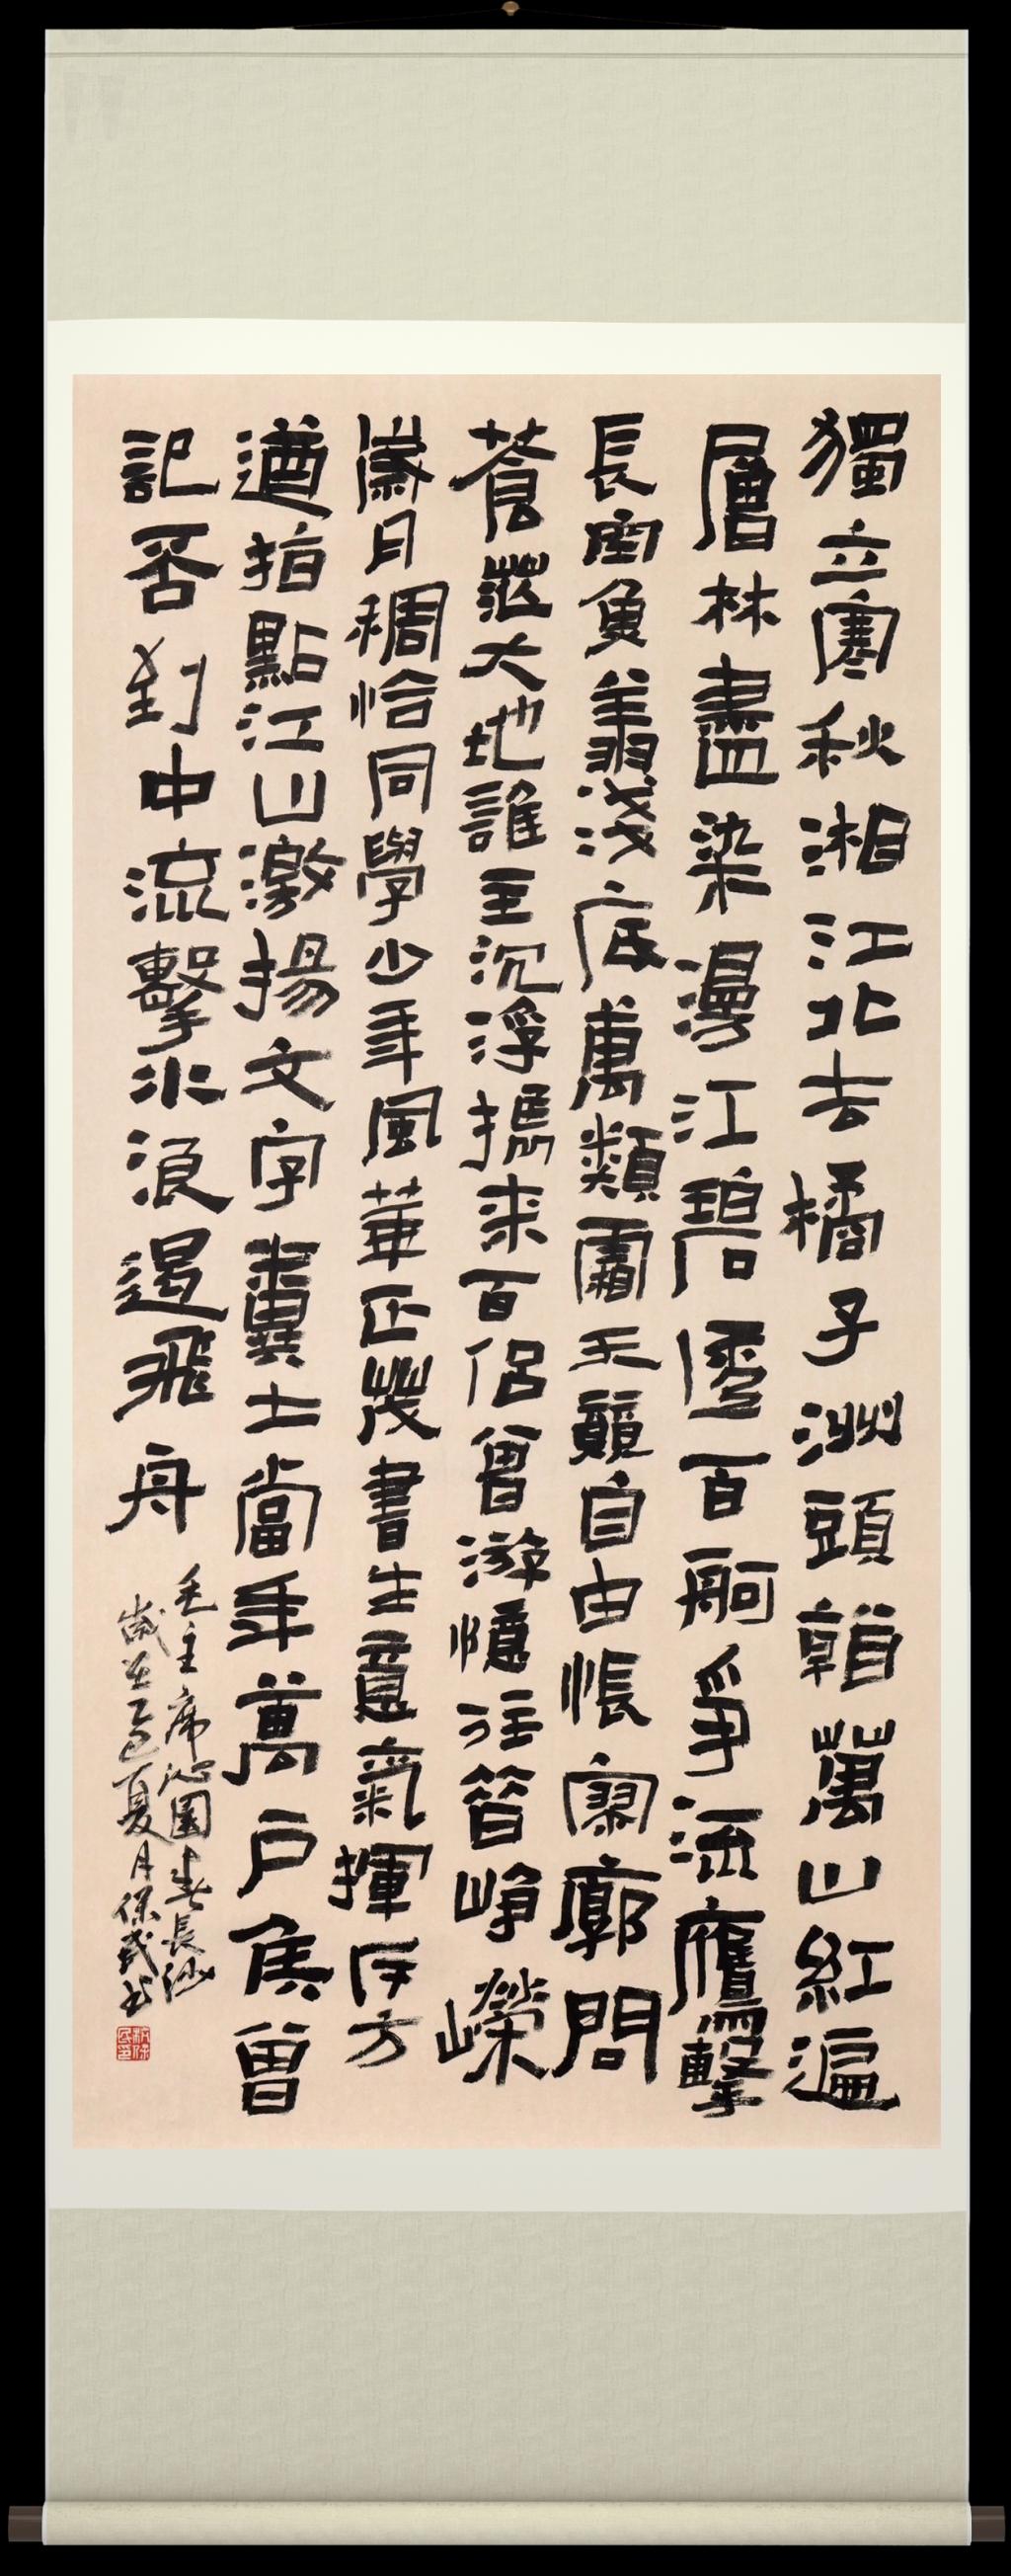 獨立寒秋湘江北去橘子洲頭看萬山紅遍
層林盡染漫江碧透百舸爭流鷹擊
長空魚翔淺底萬類霜天競自由悵寥廓問
蒼茫大地誰主沉浮攜來百侶曾游憶往昔崢嶸
歲月稠恰同學少年風華正茂書生意氣揮斥方
遒指點江山激揚文字糞土當年萬戶侯曾
記否到中流擊水浪遏飛舟
毛主席沁園春長沙
歲在乙巳夏月保民书